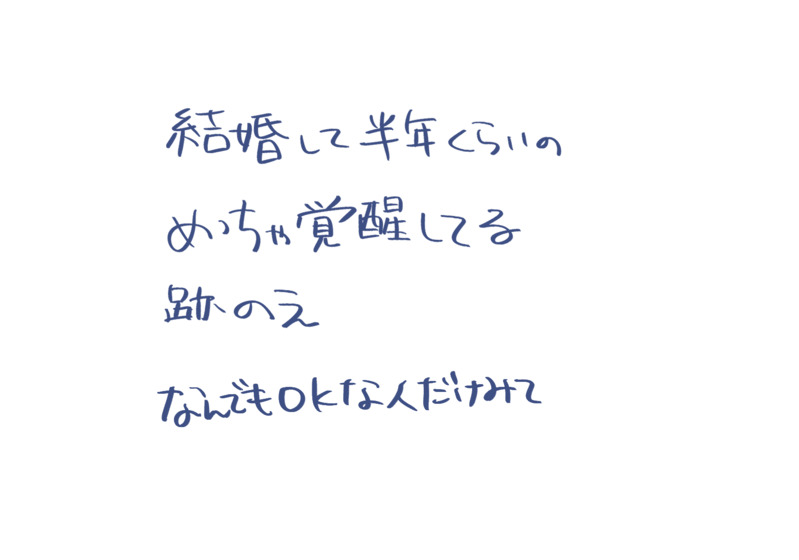 結婚して半年くらいの
めっちゃ覚醒してる
跡のえ
なんでもOKな人だけみて